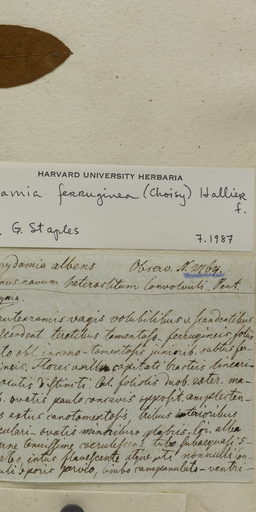 HARVARD UNIVERSITY HERBARIA
amia ferruginea (Choisy) Hallier
f.
G. Staples 7.1987
ydamia albens Observ. N. 2764.
us novum heteroclitum Convolvuli. Pent.
gynia.
ramis vagis volubilibus v. scandentibus
teretibus tomentosis, ferrugineis, foliis
tomentosis junioribus subtus fer-
ineis. Flores capitati bracteis lineari-
acutis distincti. Cal. foliolis duob. exter. ma-
ovatis paulo concavis opposit. amplecten-
extus canotomentosis, tribus interioribus
ovatis minoribus glabris. Cor. alba
tenuissime coerulescens, tubo subaequali 5-
intus flavescente nonnulli
sporis parvulo, limbo campanulato-ventri-